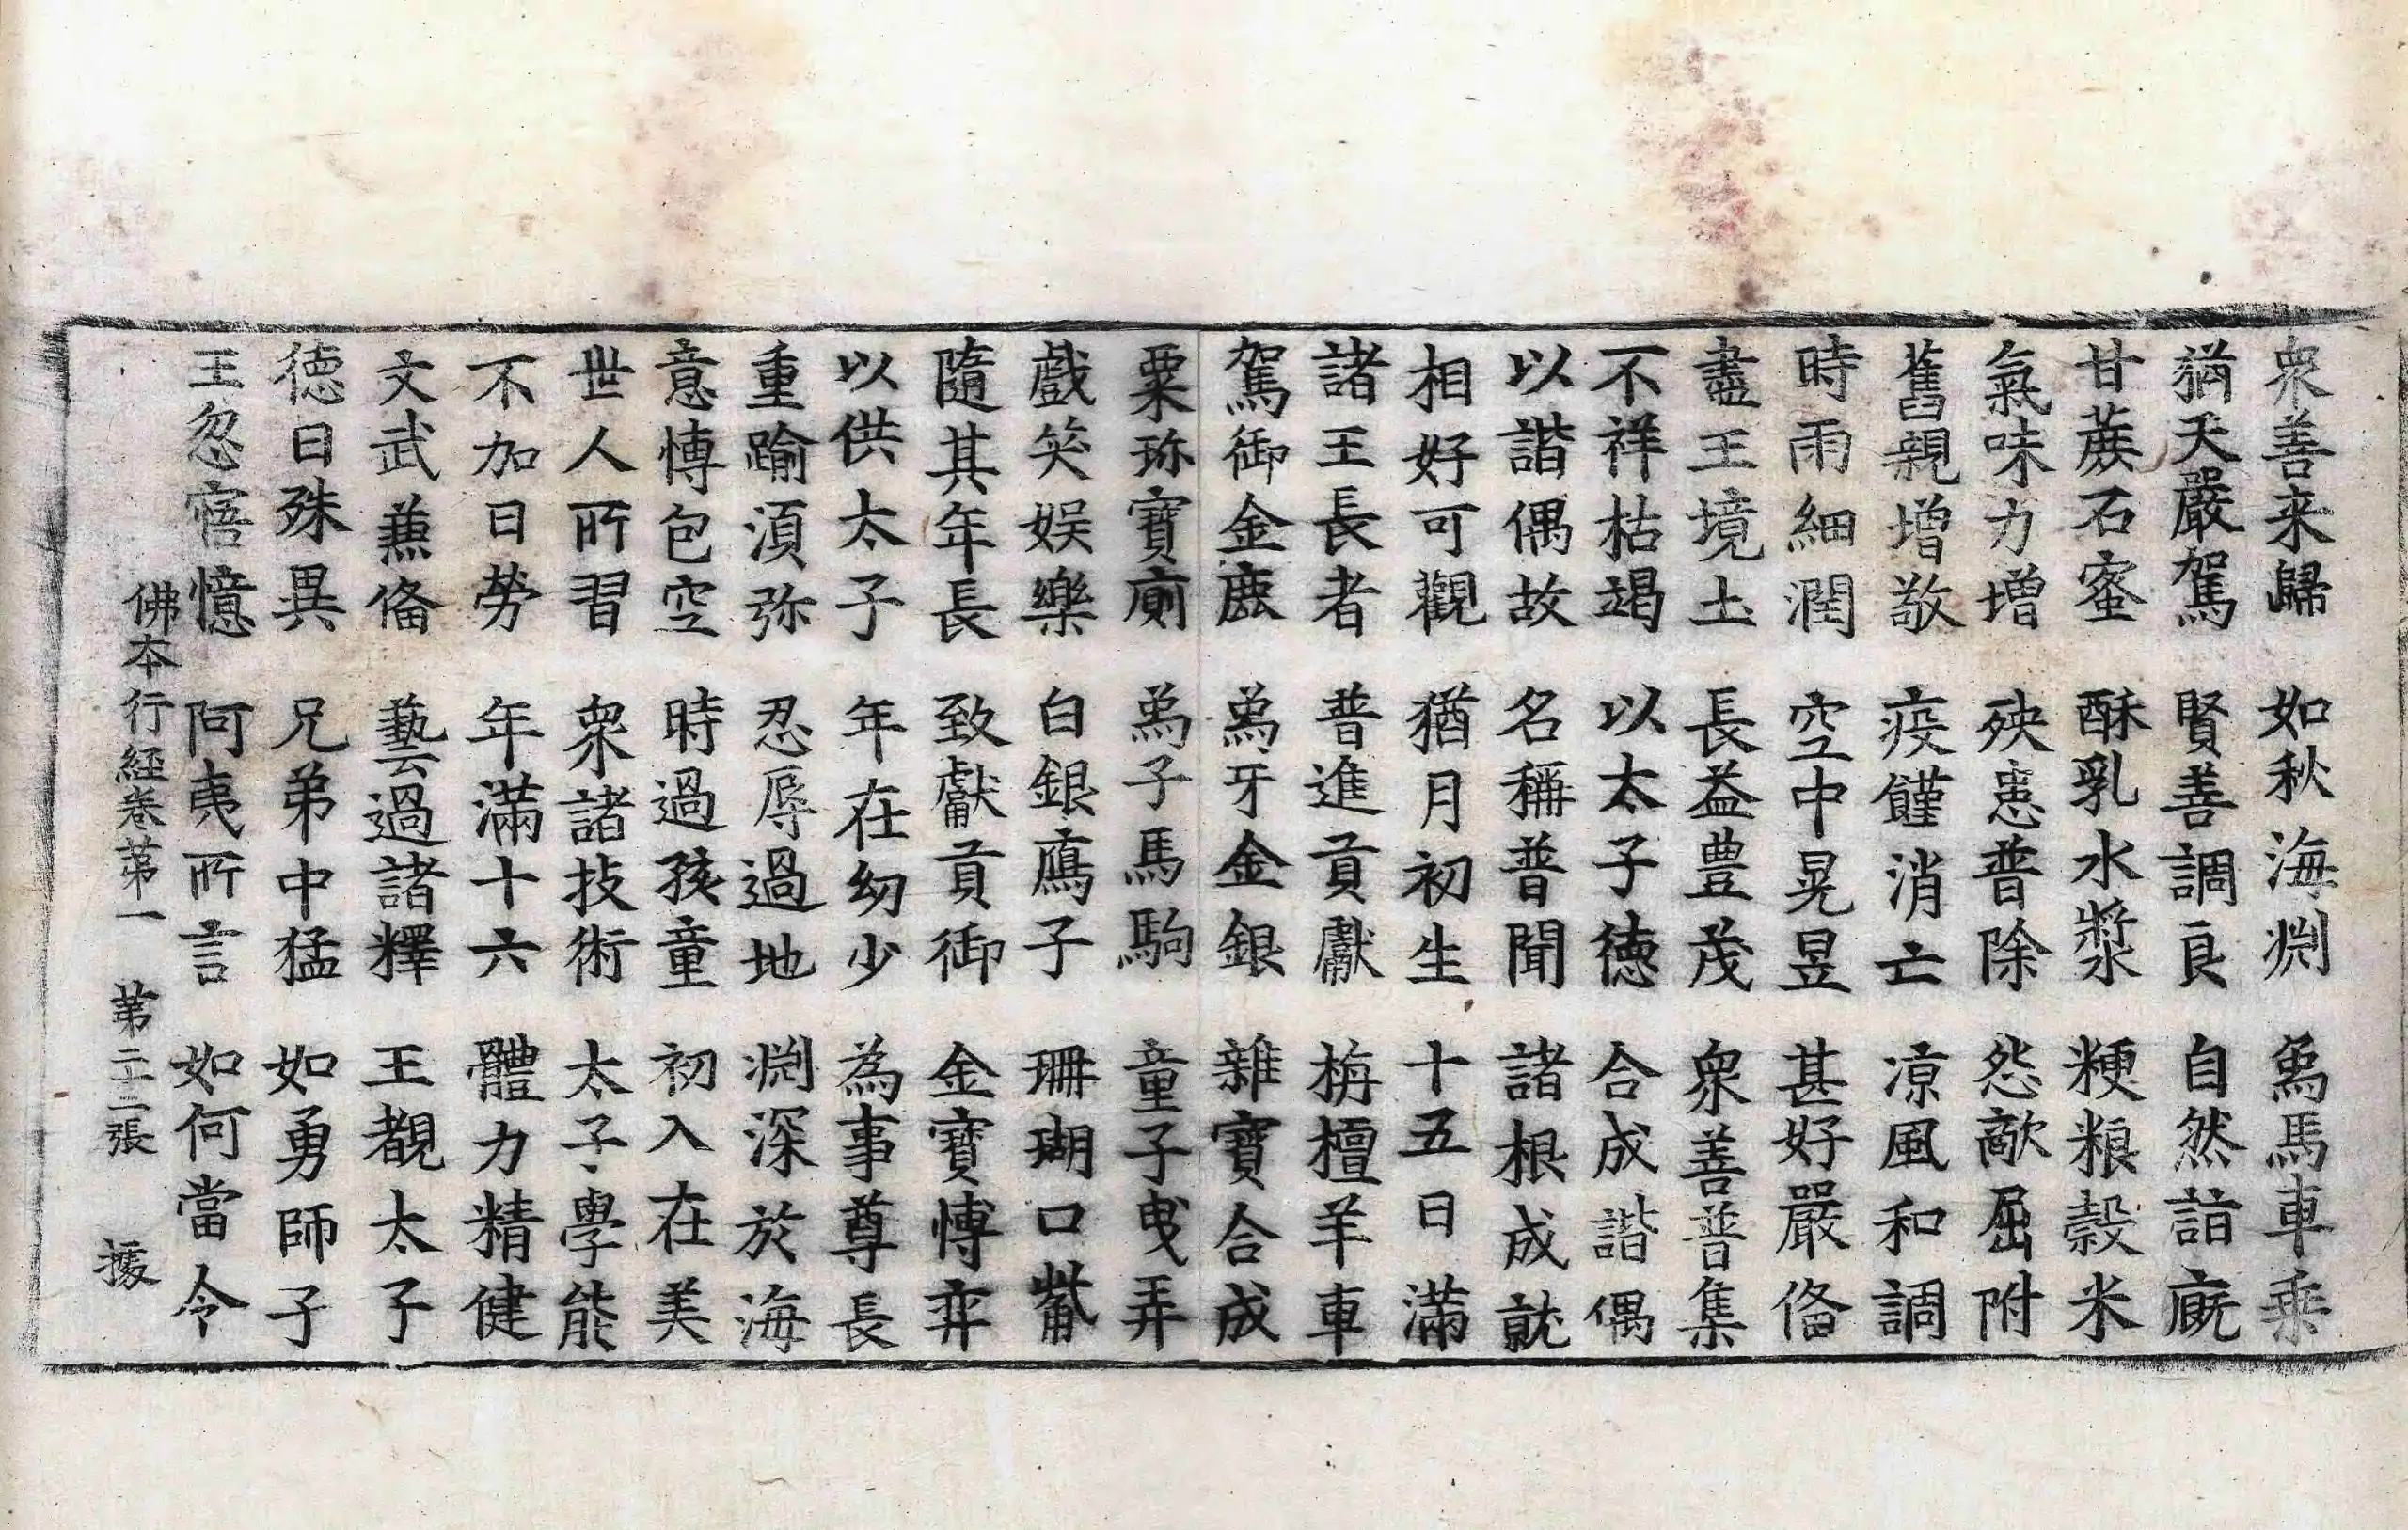 衆善来歸 如秋海渕 象馬車乗
猶天嚴駕 賢善調良 自然詣廐
甘蔗石蜜 酥乳水漿 粳粮穀米
氣味力增 殃恚普除 怨敵屈附
舊親增敬 疫饉消亡 凉風和調
時雨細潤 空中晃昱 甚好嚴俻
盡王境土 長益豊茂 衆善普集
不祥枯竭 以太子德 合成諧偶
以諧偶故 名稱普聞 諸根成就
相好可觀 猶月初生 十五日滿
諸王長者 普進貢獻 栴檀羊車
駕御金鹿 象牙金銀 雜寶合成
粟珎寶廁 象子馬駒 童子曳弄
戲笑娯樂 白銀鴈子 珊瑚口觜
隨其年長 致獻貢御 金寶愽弈
以供太子 年在幼少 為事尊長
重踰湏弥 忍辱過地 渕深於海
意愽包空 時過孩童 初入在美
世人所習 衆諸技術 太子學能
不加日勞 年滿十六 體力精健
文武𠔥俻 藝過諸釋 王覩太子
德日殊異 兄弟中猛 如勇師子
王忽寤憶 阿夷所言 如何當令
佛本行經卷第一 第二十二張 據